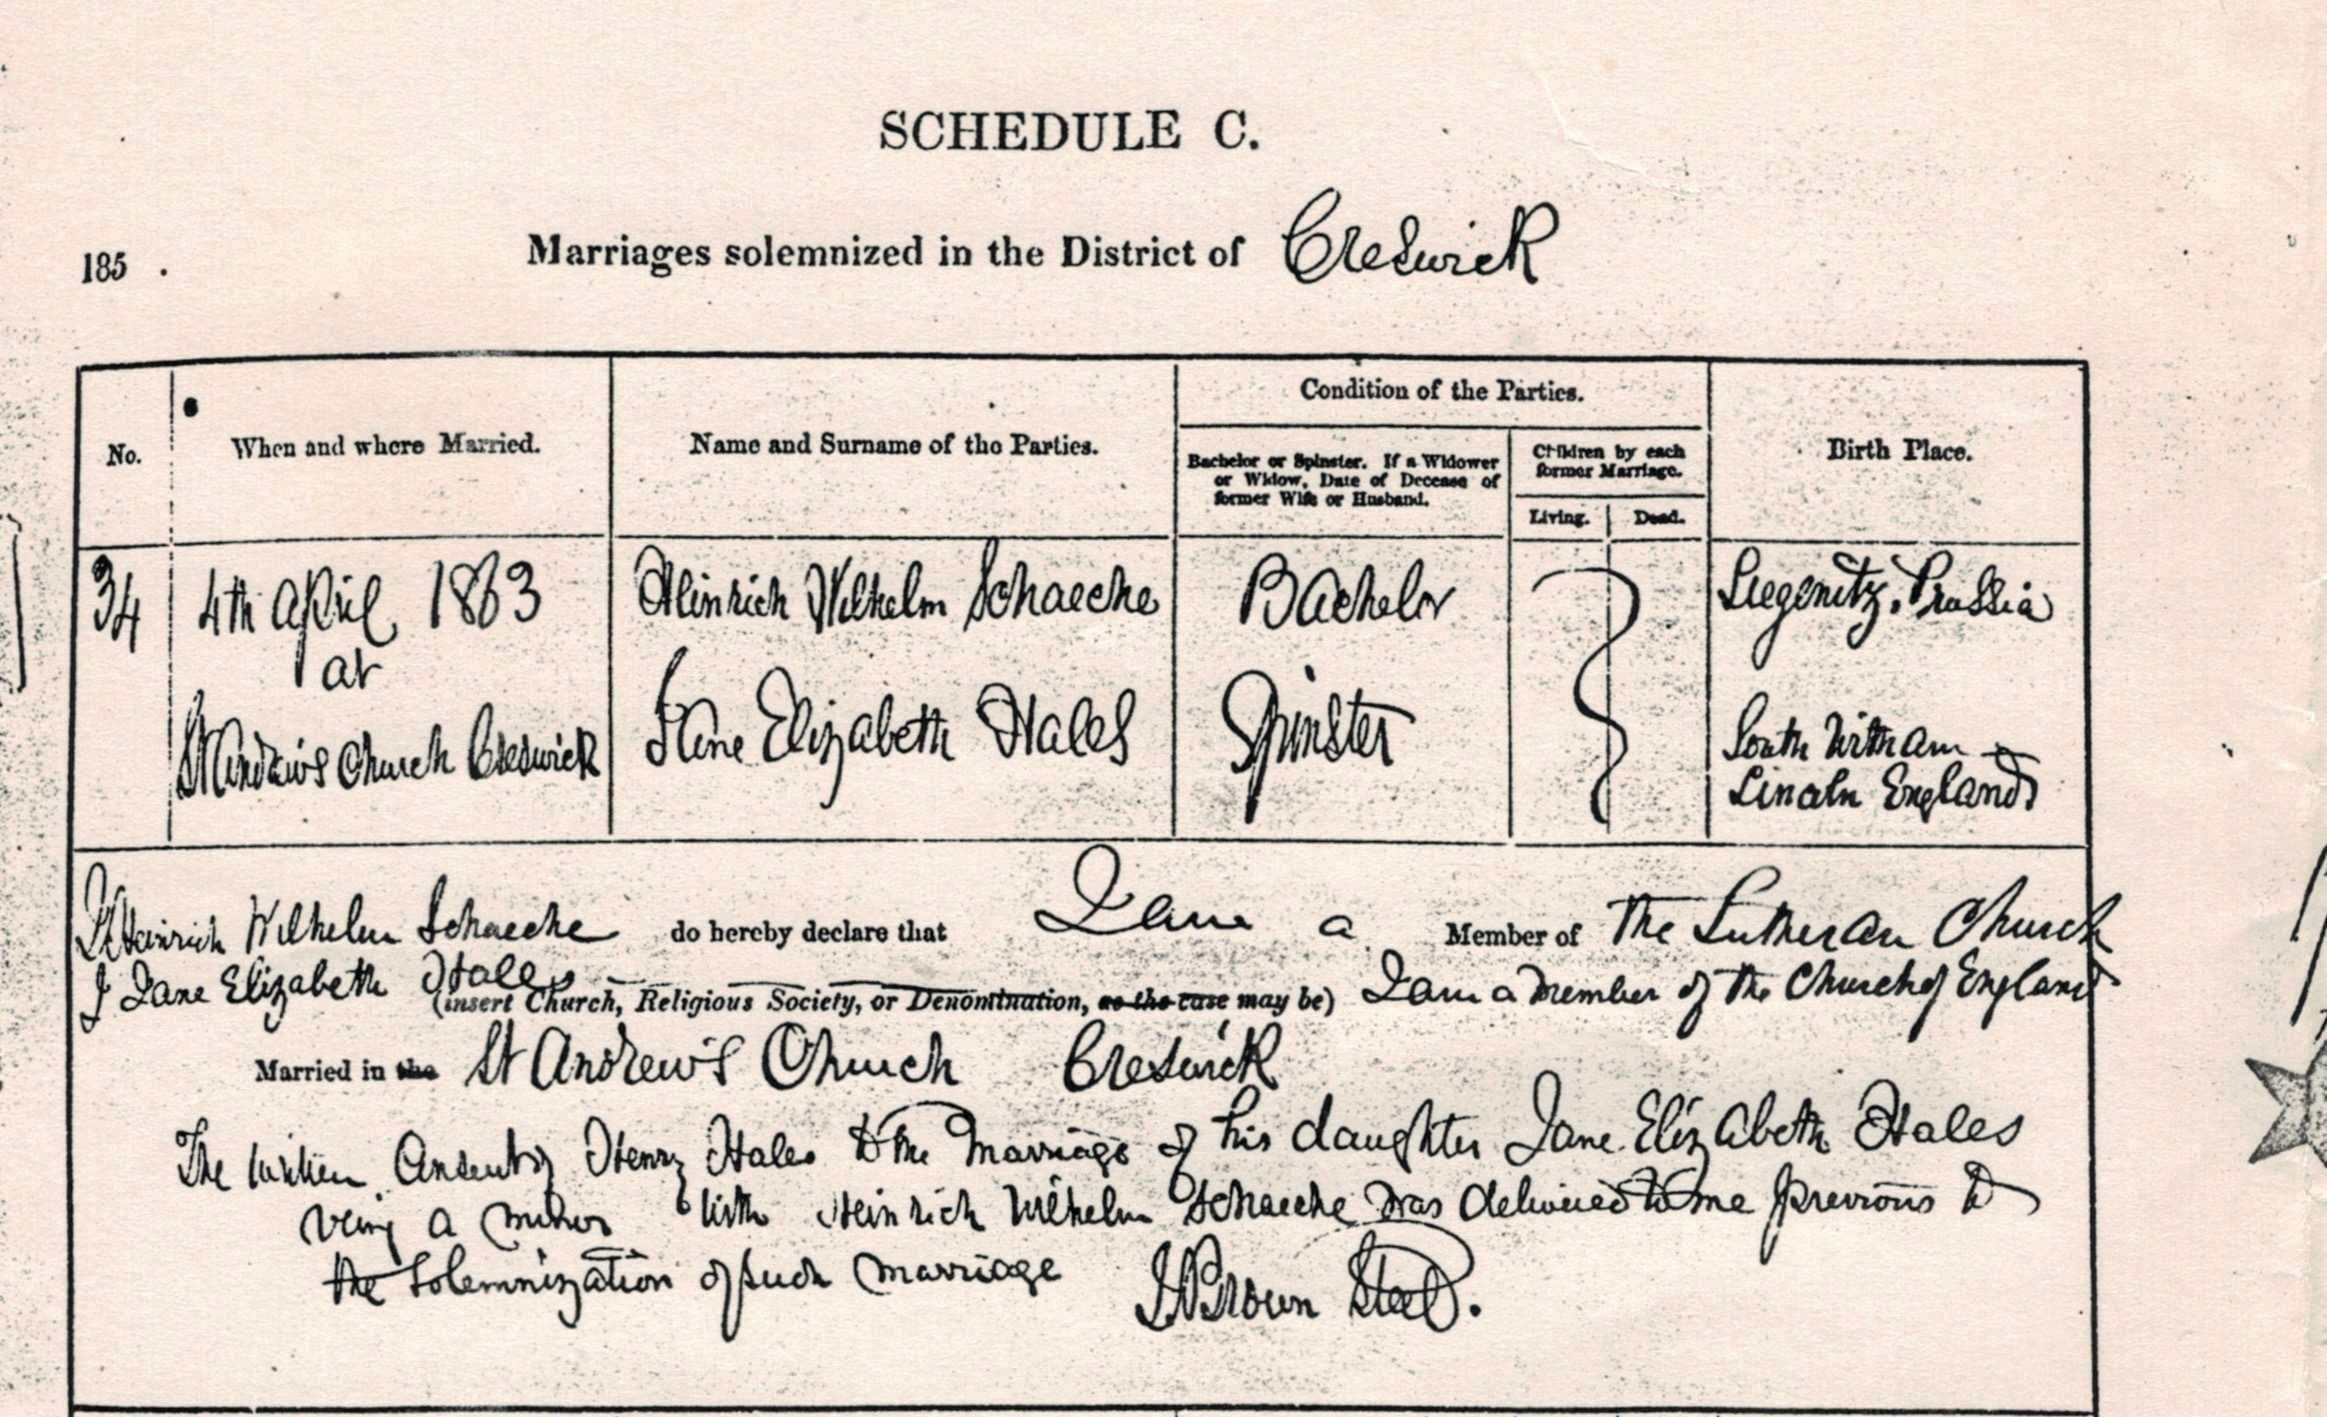 SCHEDULE C.
185 . Marriages solemnized in the District of Creswick
No.
When and where Married.
Name and Surname of the Parties.
Condition of the Parties.
Bachelor or Spinster. If a Widower
or Widow, Date of Decease of
former Wife or Husband.
Children by each
former Marriage.
Living.
Dead.
Birth Place.
34
4th April 1863
at
St Andrew's Church Creswick
Heinrich Wilhelm Schaeche
Jane Elizabeth Hales
Bachelor
Spinster
Liegenitz, Prussia
South Witham
Lincoln England
I Heinrich Wilhelm Schaeche do hereby declare that I am a Member of The Lutheran Church
I Jane Elizabeth Hales (insert Church, Religious Society, or Denomination, as the case may be) I am a member of the Church of England
Married in the St Andrew's Church Creswick
The written Consent of Henry Hales to the Marriage of his daughter Jane Elizabeth Hales
being a minor with Heinrich Wilhelm Schaeche was delivered to me previous to
the Solemnization of such marriage
J Brown Steel.